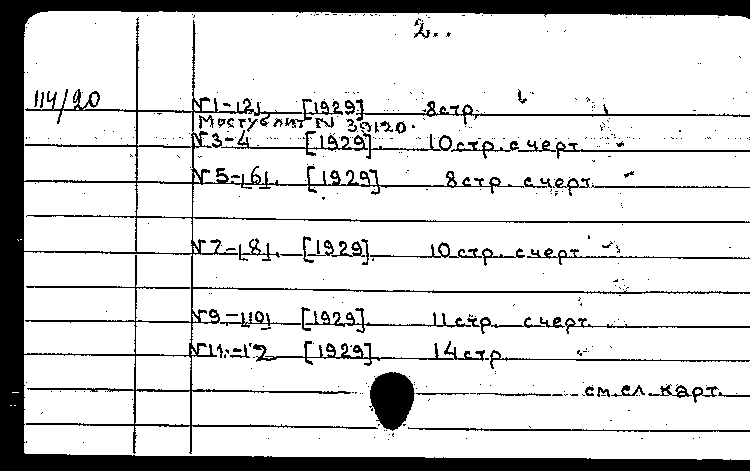 2..
114/20 №1-|2|. [1929] 8 стр.
Мосгублит N 39120.
№3-4 [1929]. 10 стр. с черт.
№5-|6|. [1929]. 8 стр. с черт.
№7-|8|. [1929]. 10 стр. с черт.
№9-|10| [1929]. 11 стр. с черт.
№11-12 [1929]. 14 стр.
см. сл. карт.